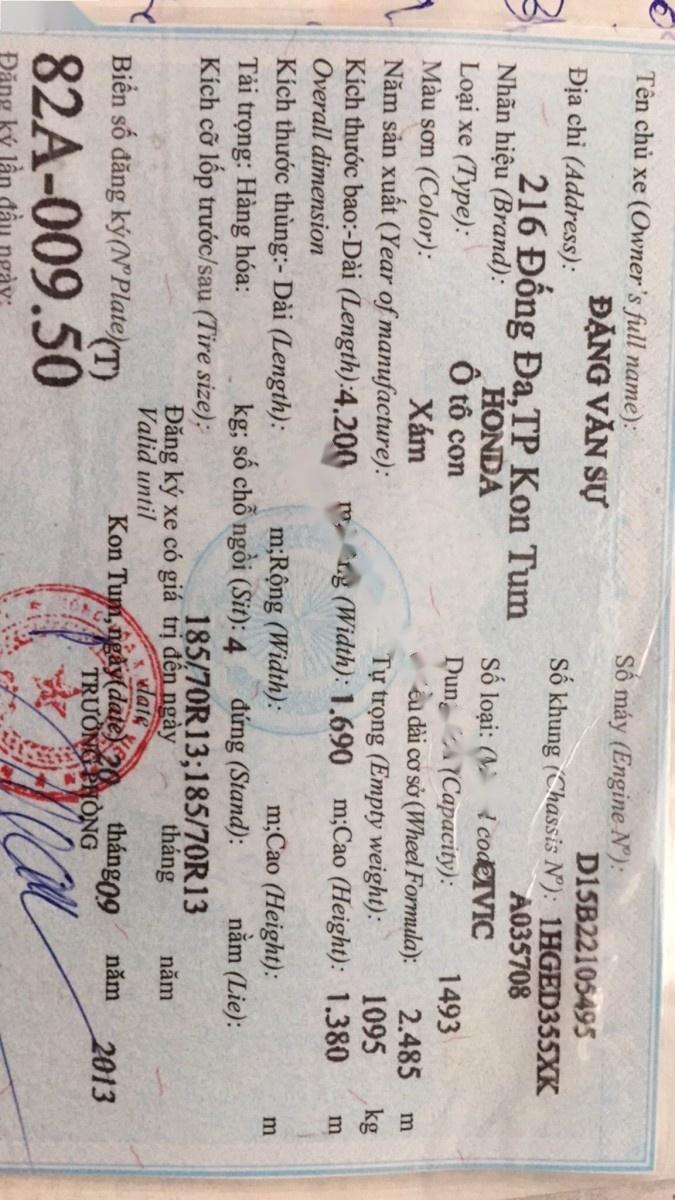 Tên chủ xe (Owner's full name): Số máy (Engine Nº): D15B22105495
ĐẶNG VĂN SỰ
Địa chỉ (Address): Số khung (Chassis Nº): 1HGED355XK
A035708
216 Đống Đa,TP Kon Tum
Nhãn hiệu (Brand): HONDA Số loại: code CIVIC
Loại xe (Type): Ô tô con (Capacity): 1493
Màu sơn (Color): Xám dài cơ sở (Wheel Formula): 2.485 m
Năm sản xuất (Year of manufacture): Tự trọng (Empty weight): 1095 kg
Kích thước bao:-Dài (Length):4.200 m; (Width): 1.690 m;Cao (Height): 1.380 m
Overall dimension
Kích thước thùng:- Dài (Length): m;Rộng (Width): m;Cao (Height): m
Tải trọng: Hàng hóa: kg; số chỗ ngồi (Sit): 4 đứng (Stand): nằm (Lie):
Kích cỡ lốp trước/sau (Tire size): 185/70R13;185/70R13
Đăng ký xe có giá trị đến ngày tháng năm
Valid until date
Biển số đăng ký(Nº Plate)(T) Kon Tum,ngày(date) 20 tháng 09 năm 2013
TRƯỞNG PHÒNG
82A-009.50
Đăng ký lần đầu ngày: